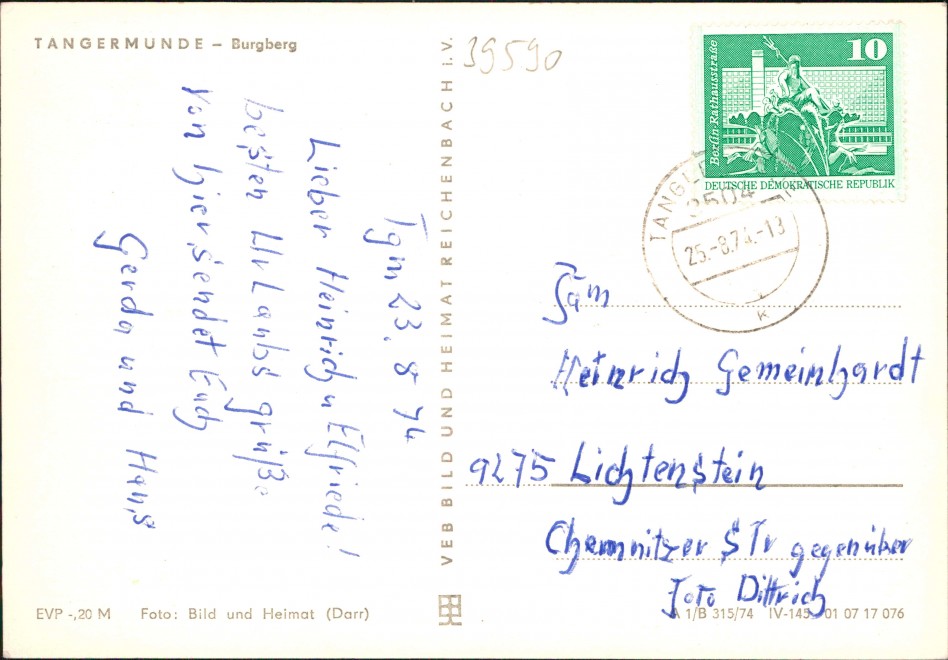 TANGERMÜNDE – Burgberg
Tgm 23. 8 74
Lieber Heinrich u Elfriede!
besten Urlaubs grüße
von hier sendet Euch
Gerda und Hans
EVP -,20 M Foto: Bild und Heimat (Darr)
VEB BILD UND HEIMAT REICHENBACH I. V.
39590
10
Berlin-Rathausstraße
DEUTSCHE DEMOKRATISCHE REPUBLIK
3504
25.-8.74.-13
K
Fam
Heinrich Gemeinhardt
9275 Lichtenstein
Chemnitzer STr gegenüber
Foto Dittrich
A 1/B 315/74 IV-14-5 01 07 17 076